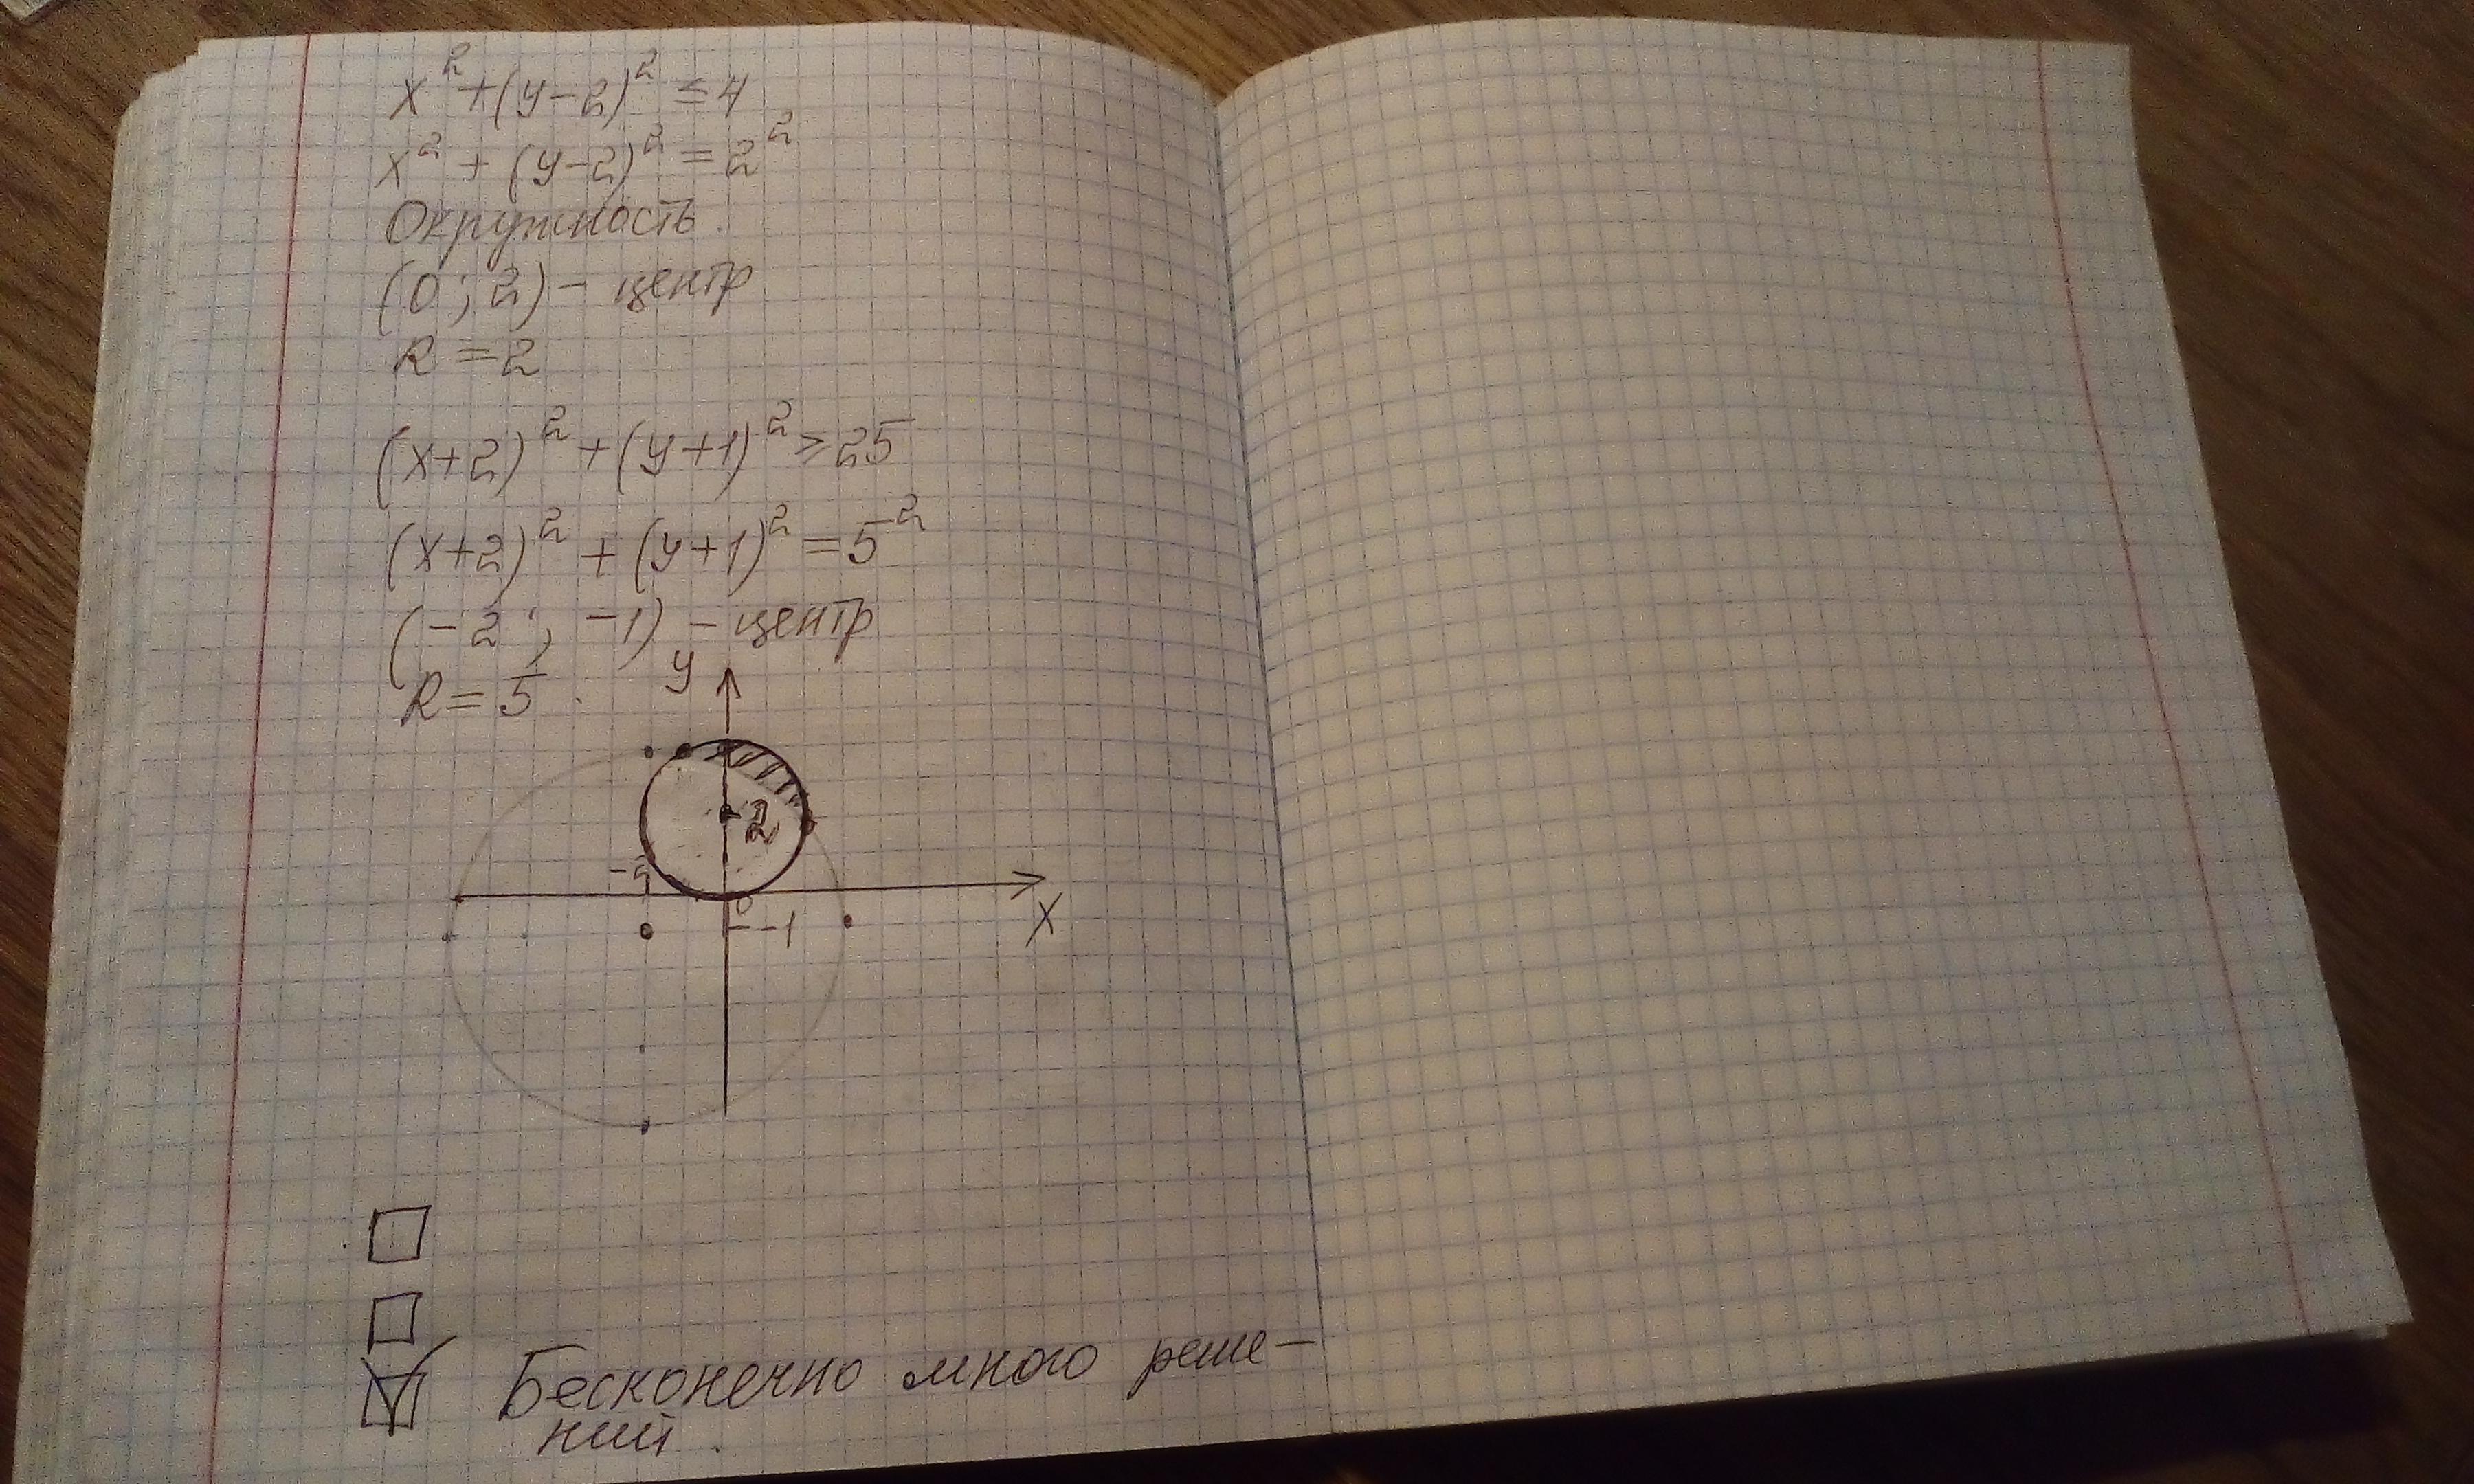 x² + (y-2)² ≤ 4
x² + (y-2)² = 2²
Окружность.
(0; 2) - центр
R = 2
(x+2)² + (y+1)² ≥ 25
(x+2)² + (y+1)² = 5²
(-2; -1) - центр
R = 5.
y
2
-2
0
-1
x
Бесконечно много реше-
ний.